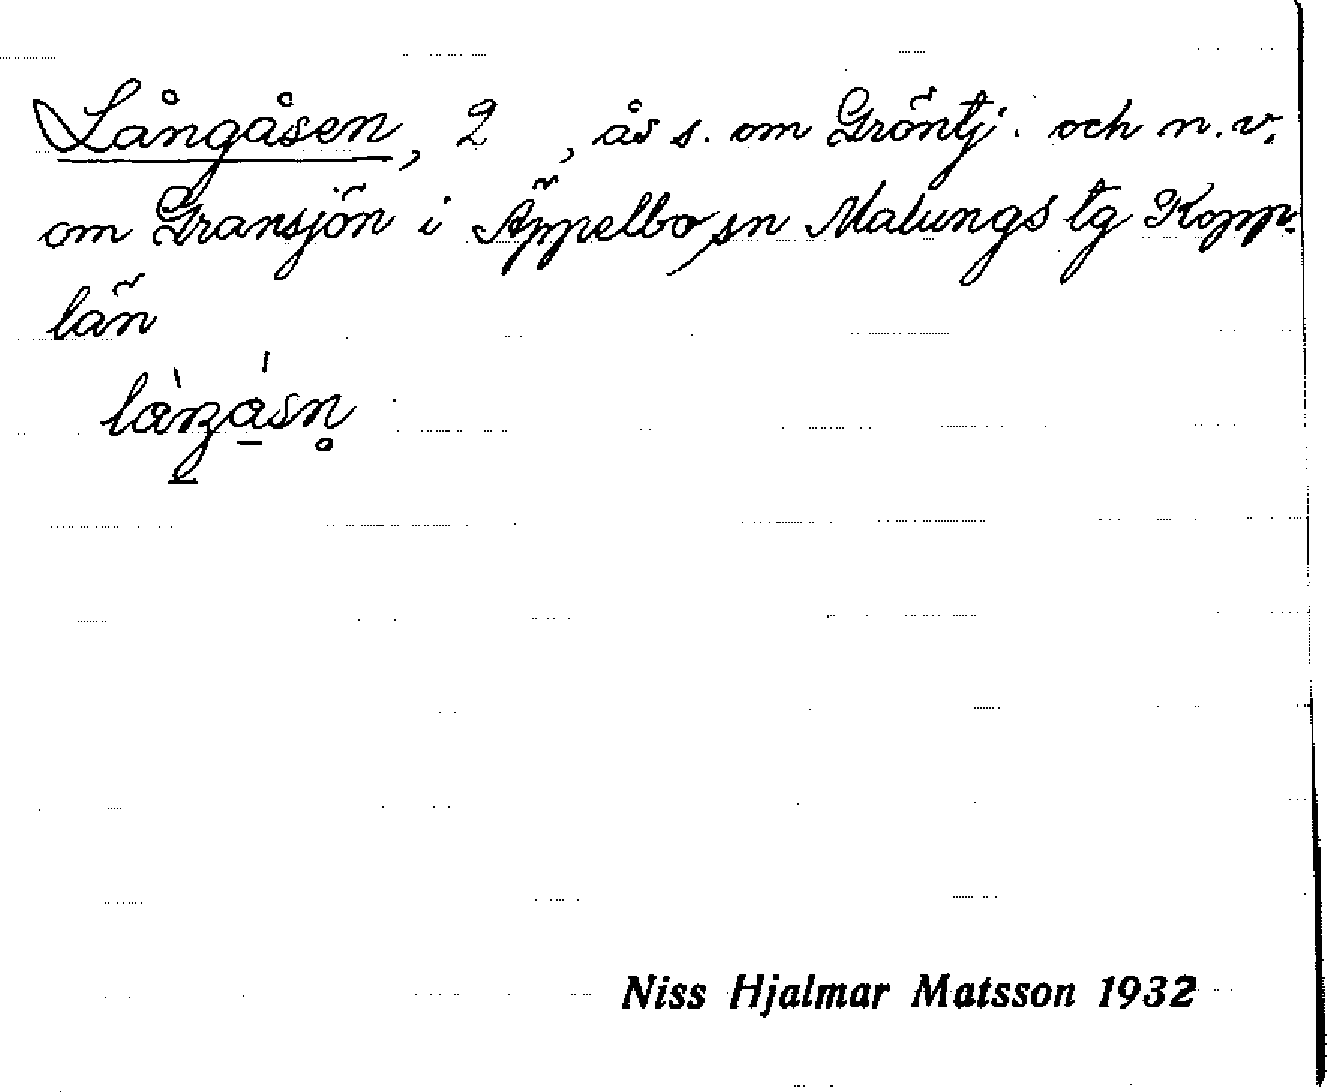 Långåsen, 2 , ås s. om Gröntj. och n.v.
om Gransjön i Äppelbo sn Malungs tg Kopp.
län
Niss Hjalmar Matsson 1932